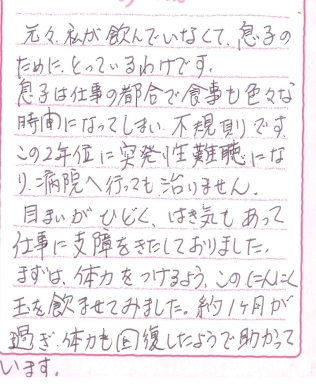 元々、私が飲んでいなくて、息子の
ために、とっているわけです。
息子は仕事の都合で食事も色々な
時間になってしまい、不規則です。
この2年位に突発性難聴にな
り、病院へ行っても治りません。
目まいがひどく、はき気もあって
仕事に支障をきたしておりました。
まずは、体力をつけるよう、このにんにく
玉を飲ませてみました。約1ヶ月が
過ぎ、体力も回復したようで助かって
います。